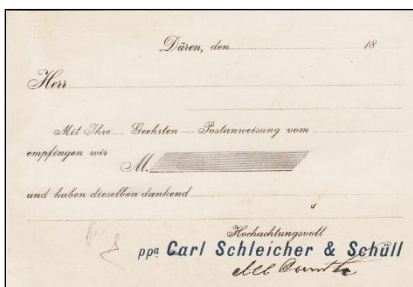 Düren, den 18
Herr
Mit Ihre Geehrten Postanweisung vom
empfingen wir M.
und haben dieselben dankend
Hochachtungsvoll
ppa Carl Schleicher & Schüll